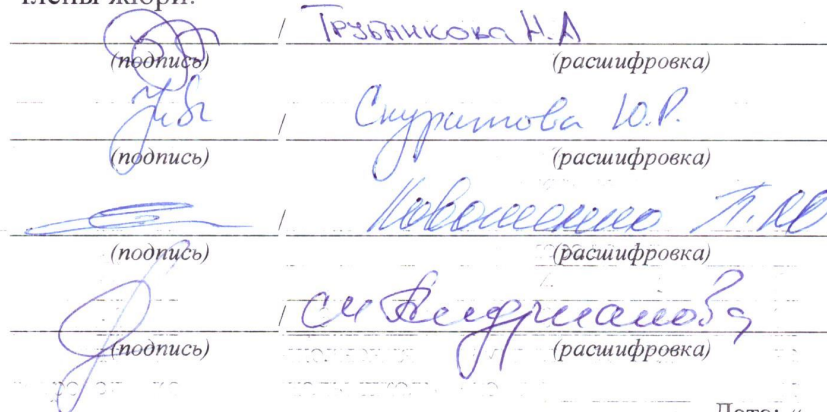 члены жюри:
/ Трубникова Н.А
(подпись) (расшифровка)
/ Скуритова Ю.Р.
(подпись) (расшифровка)
/
(подпись) (расшифровка)
/ СИ Андрианова
(подпись) (расшифровка)
Дата: «